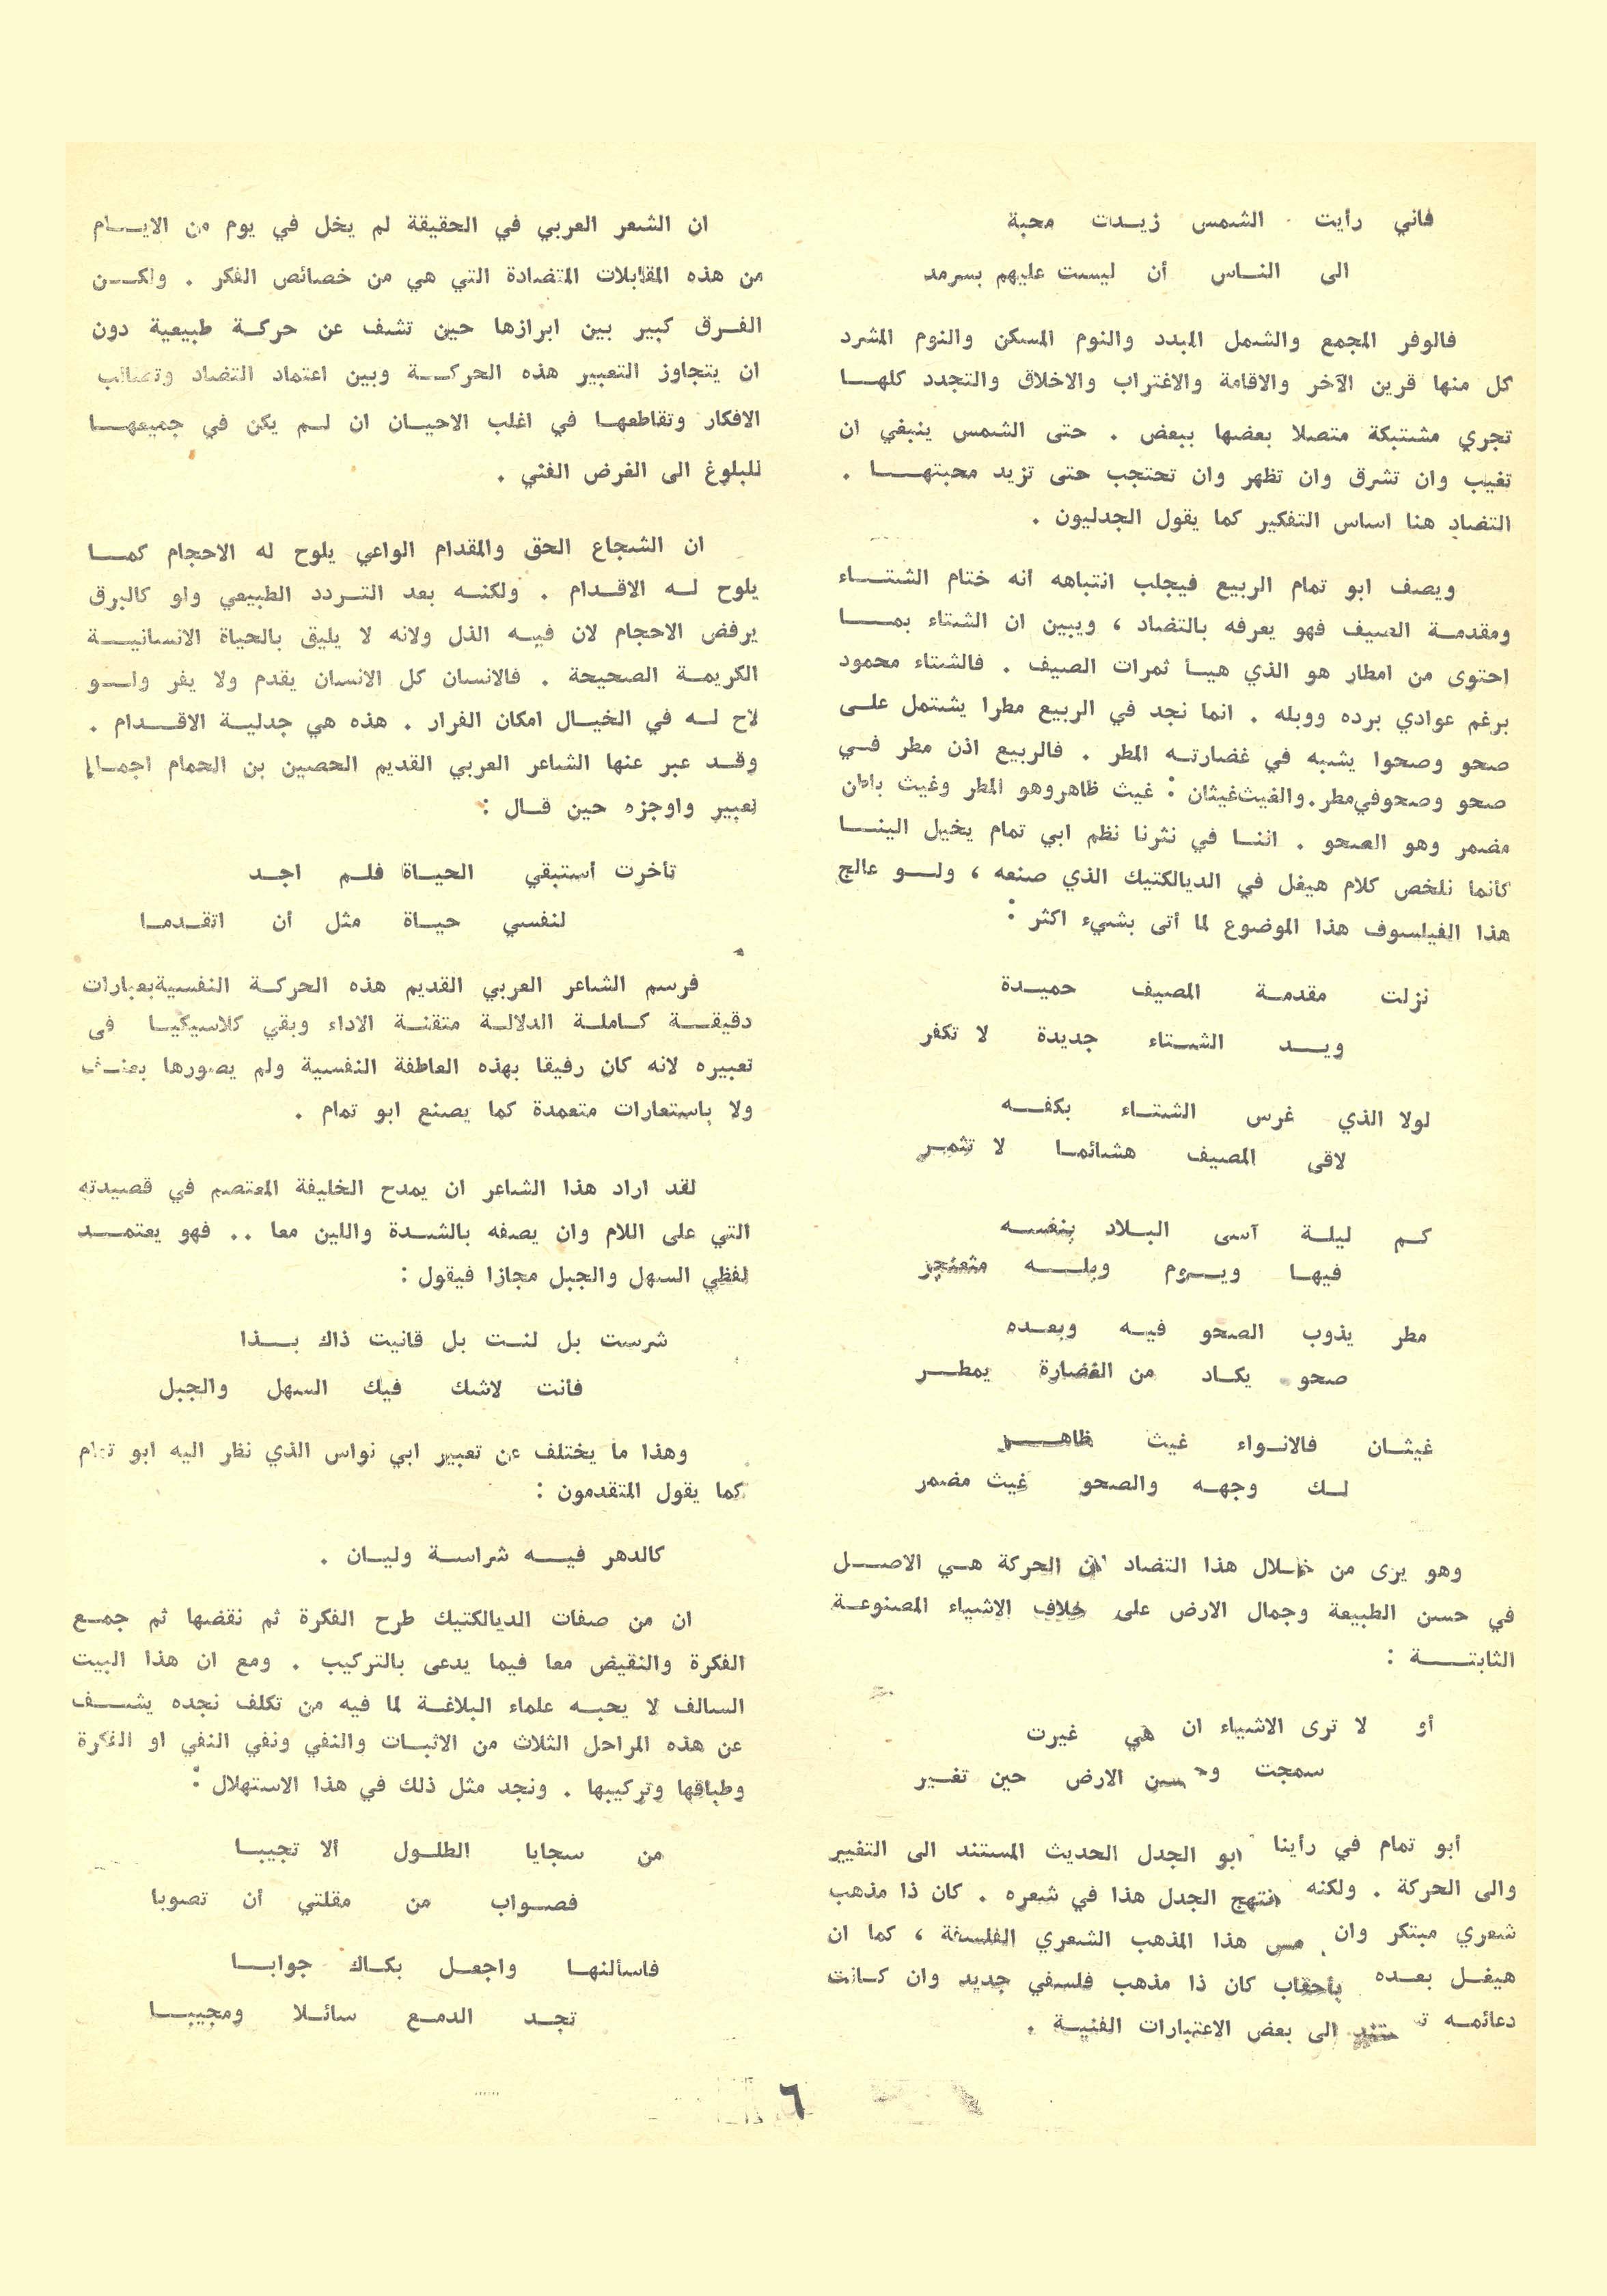 فاني رأيت الشمس زيدت محبة
الى الناس أن ليست عليهم بسرمد
فالوفر المجمع والشمل المبدد والنوم المسكن والنوم المشرد
كل منها قرين الآخر والاقامة والاغتراب والاخلاق والتجدد كلها
تجري مشتبكة متصلا بعضها ببعض . حتى الشمس ينبغي ان
تغيب وان تشرق وان تظهر وان تحتجب حتى تزيد محبتها .
التضاد هنا اساس التفكير كما يقول الجدليون .
ويصف ابو تمام الربيع فيجلب انتباهه انه ختام الشتاء
ومقدمة الصيف فهو يعرفه بالتضاد ، ويبين ان الشتاء بما
احتوى من امطار هو الذي هيأ ثمرات الصيف . فالشتاء محمود
برغم عوادي برده ووبله . انما نجد في الربيع مطرا يشتمل على
صحو وصحوا يشبه في غضارته المطر . فالربيع اذن مطر في
صحو وصحو في مطر . والغيث غيثان : غيث ظاهر وهو المطر وغيث باطن
مضمر وهو الصحو . اننا في نثرنا نظم ابي تمام يخيل الينا
كأنما نلخص كلام هيغل في الديالكتيك الذي صنعه ، ولو عالج
هذا الفيلسوف هذا الموضوع لما أتى بشيء اكثر :
نزلت مقدمة المصيف حميدة
ويد الشتاء جديدة لا تكفر
لولا الذي غرس الشتاء بكفه
لاقى المصيف هشائما لا تثمر
كم ليلة آسى البلاد بنفسه
فيها ويوم وبله مثعنجر
مطر يذوب الصحو فيه وبعده
صحو يكاد من الغضارة يمطر
غيثان فالانواء غيث ظاهر
لك وجهه والصحو غيث مضمر
وهو يرى من خلال هذا التضاد ان الحركة هي الاصل
في حسن الطبيعة وجمال الارض على خلاف الاشياء المصنوعة
الثابتة :
أو لا ترى الاشياء ان هي غيرت
سمجت وحسن الارض حين تغير
أبو تمام في رأينا ابو الجدل الحديث المستند الى التغيير
والى الحركة . ولكنه انتهج الجدل هذا في شعره . كان ذا مذهب
شعري مبتكر وان مس هذا المذهب الشعري الفلسفة ، كما ان
هيغل بعده بأحقاب كان ذا مذهب فلسفي جديد وان كانت
دعائمه تستند الى بعض الاعتبارات الفنية .
ان الشعر العربي في الحقيقة لم يخل في يوم من الايام
من هذه المقابلات المتضادة التي هي من خصائص الفكر . ولكن
الفرق كبير بين ابرازها حين تشف عن حركة طبيعية دون
ان يتجاوز التعبير هذه الحركة وبين اعتماد التضاد وتصالب
الافكار وتقاطعها في اغلب الاحيان ان لم يكن في جميعها
للبلوغ الى الغرض الفني .
ان الشجاع الحق والمقدام الواعي يلوح له الاحجام كما
يلوح له الاقدام . ولكنه بعد التردد الطبيعي ولو كالبرق
يرفض الاحجام لان فيه الذل ولانه لا يليق بالحياة الانسانية
الكريمة الصحيحة . فالانسان كل الانسان يقدم ولا يفر ولو
لاح له في الخيال امكان الفرار . هذه هي جدلية الاقدام .
وقد عبر عنها الشاعر العربي القديم الحصين بن الحمام اجمل
تعبير واوجزه حين قال :
تأخرت أستبقي الحياة فلم اجد
لنفسي حياة مثل أن اتقدما
فرسم الشاعر العربي القديم هذه الحركة النفسية بعبارات
دقيقة كاملة الدلالة متقنة الاداء وبقي كلاسيكيا في
تعبيره لانه كان رفيقا بهذه العاطفة النفسية ولم يصورها بعنف
ولا باستعارات متعمدة كما يصنع ابو تمام .
لقد اراد هذا الشاعر ان يمدح الخليفة المعتصم في قصيدته
التي على اللام وان يصفه بالشدة واللين معا .. فهو يعتمد
لفظي السهل والجبل مجازا فيقول :
شرست بل لنت بل قانيت ذاك بذا
فأنت لاشك فيك السهل والجبل
وهذا ما يختلف عن تعبير ابي نواس الذي نظر اليه ابو تمام
كما يقول المتقدمون :
كالدهر فيه شراسة وليان .
ان من صفات الديالكتيك طرح الفكرة ثم نقضها ثم جمع
الفكرة والنقيض معا فيما يدعى بالتركيب . ومع ان هذا البيت
السالف لا يحبه علماء البلاغة لما فيه من تكلف نجده يشف
عن هذه المراحل الثلاث من الاثبات والنفي ونفي النفي او الفكرة
وطباقها وتركيبها . ونجد مثل ذلك في هذا الاستهلال :
من سجايا الطلول ألا تجيبا
فصواب من مقلتي أن تصوبا
فاسألنها واجعل بكاك جوابا
تجد الدمع سائلا ومجيبا
٦